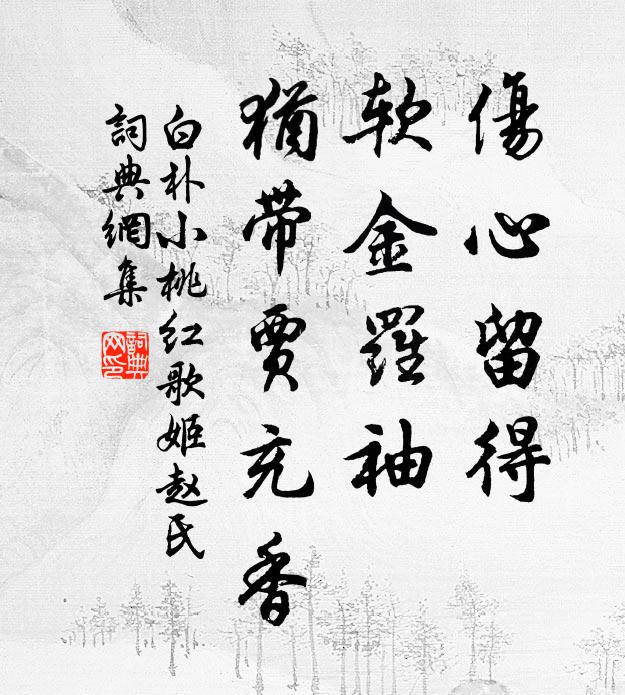 傷心留得
软金羅袖
猶带賈充香
白朴小桃红歌姬赵氏
詞典網集
詞典
网印